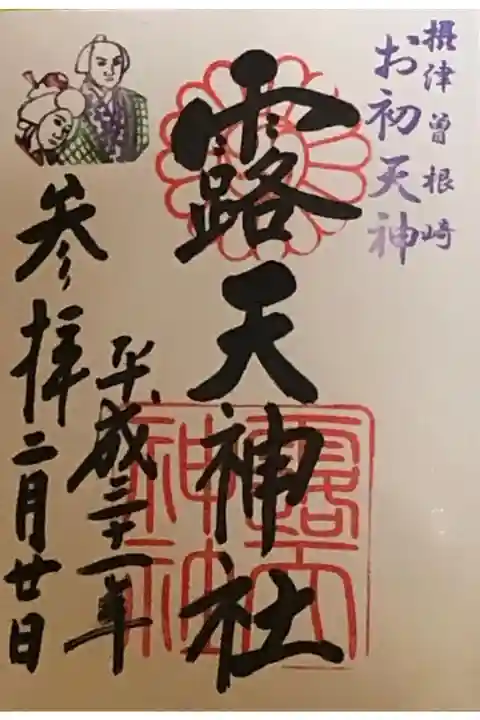 摂津曽根崎
お初天神
露天神社
平成三十一年
二月廿日
参拝